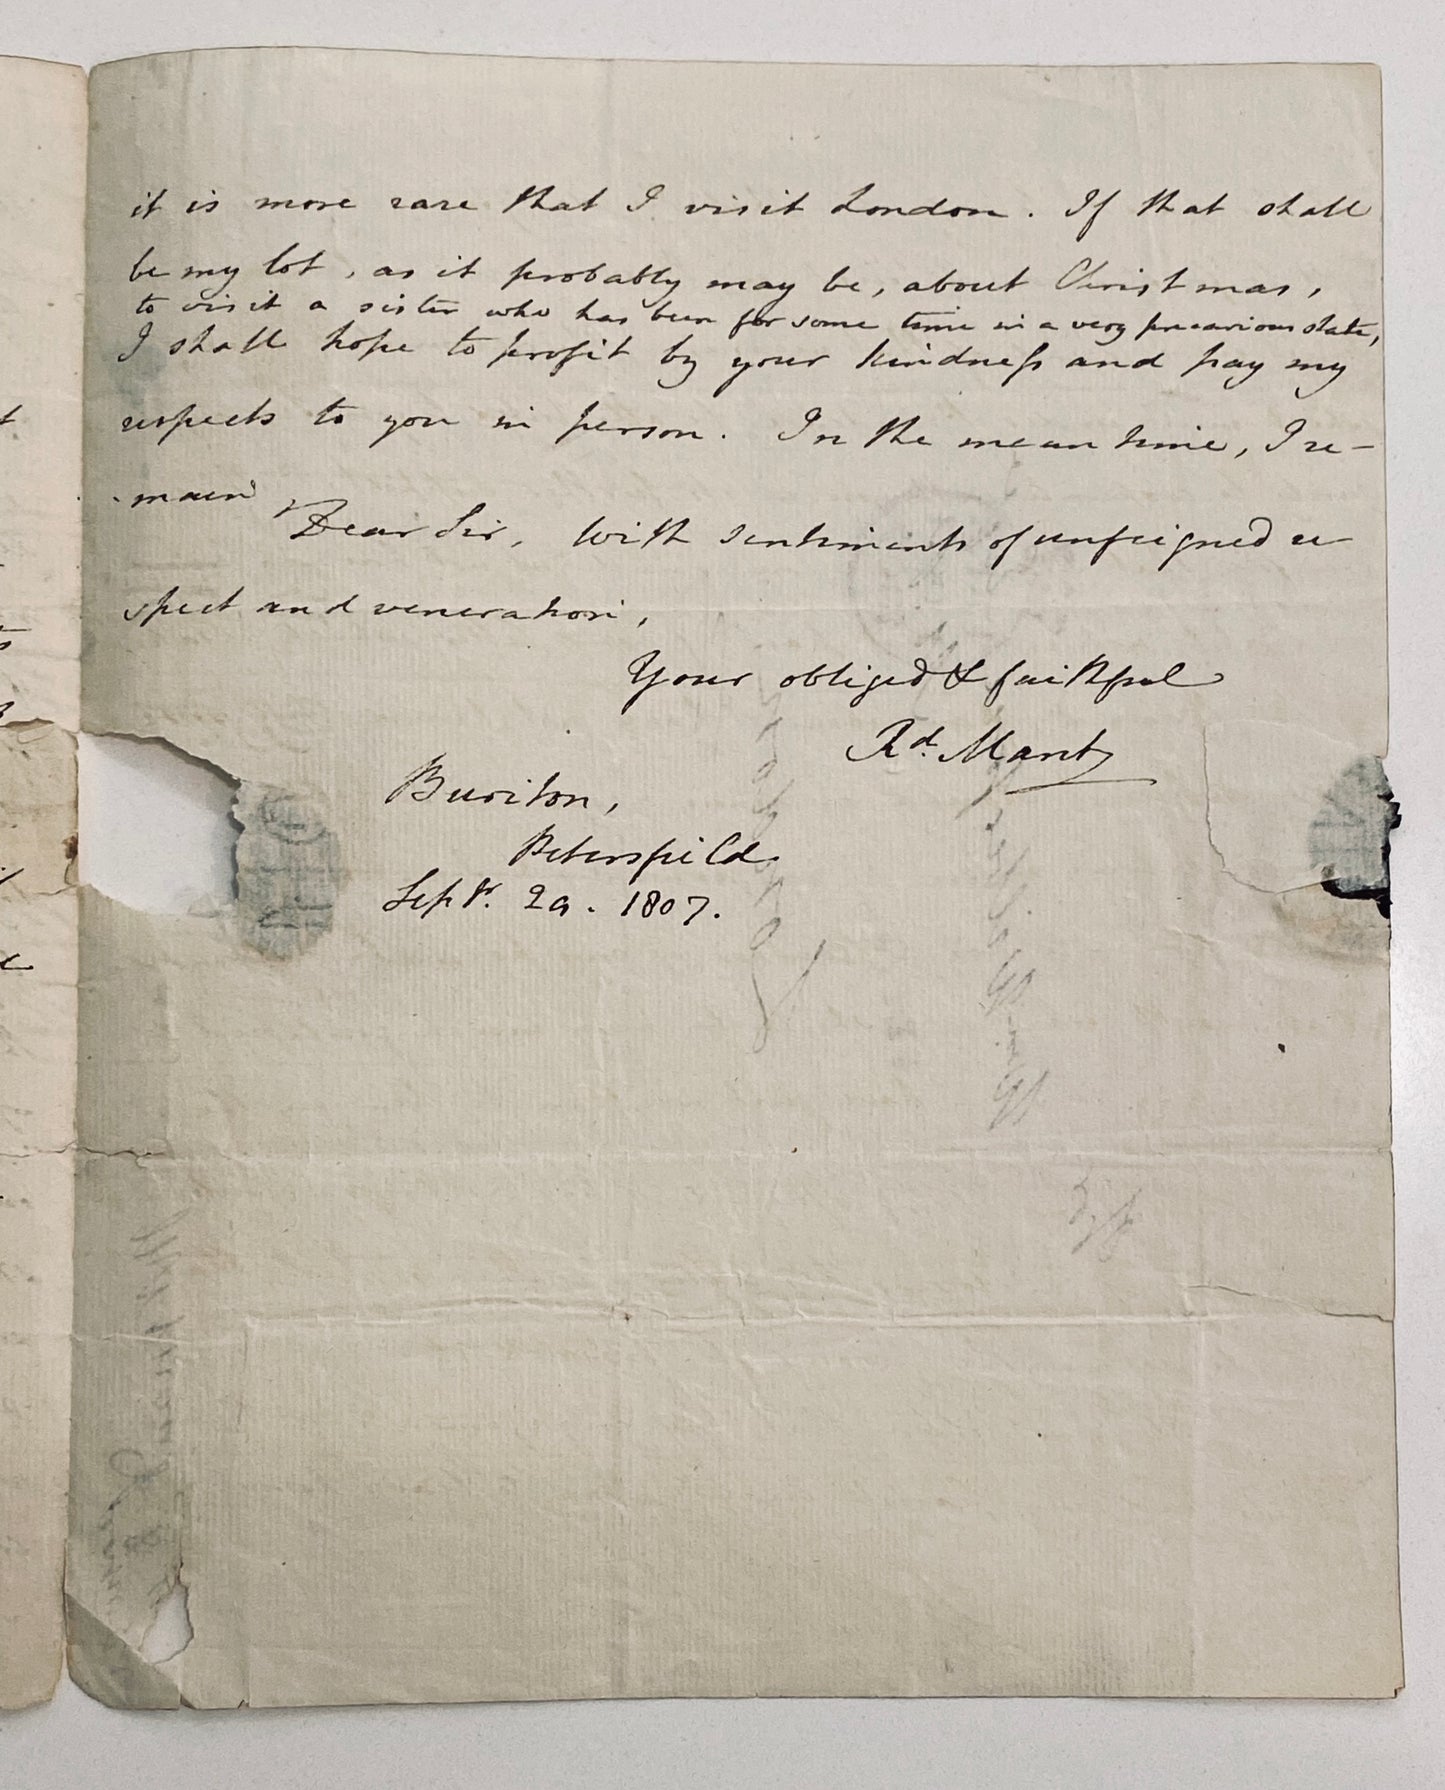 it is more rare that I visit London. If that shall
be my lot, as it probably may be, about Christmas,
to visit a sister who has been for some time in a very precarious state,
I shall hope to profit by your kindness and pay my
respects to you in person. In the mean time, I re-
-main
Dear Sir, with sentiments of unfeigned re-
spect and veneration,
Your obliged & faithful
Rd. Mant
Buriton,
Petersfield.
Septr. 29. 1807.